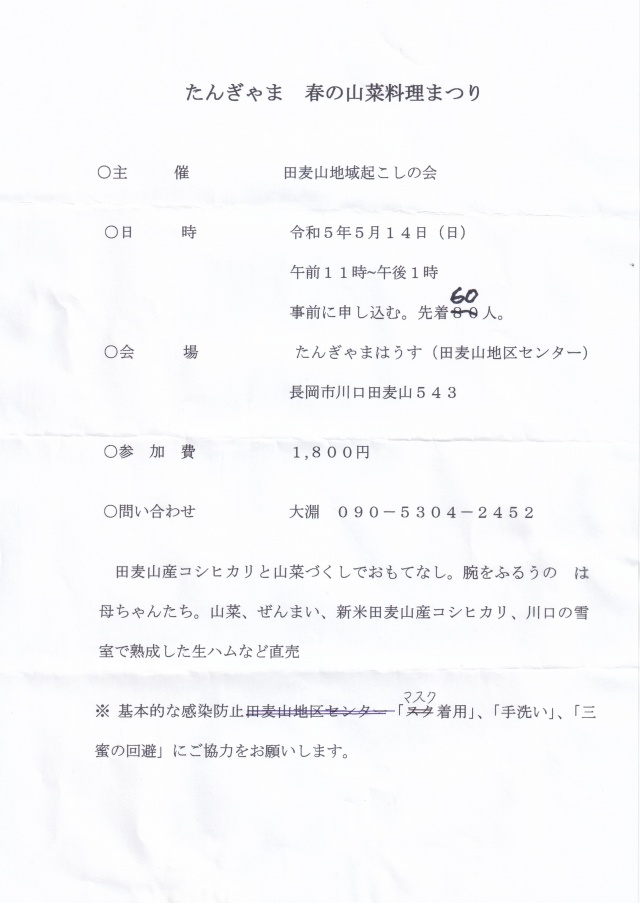 たんぎゃま　春の山菜料理まつり
○主　　　催　　　　　　田麦山地域起こしの会
○日　　　時　　　　　　令和５年５月１４日（日）
午前１１時~午後１時
60
事前に申し込む。先着８０人。
○会　　　場　　　　　　たんぎゃまはうす（田麦山地区センター）
長岡市川口田麦山５４３
○参　加　費　　　　　　１,８００円
○問い合わせ　　　　　　大淵　０９０－５３０４－２４５２
田麦山産コシヒカリと山菜づくしでおもてなし。腕をふるうの　は
母ちゃんたち。山菜、ぜんまい、新米田麦山産コシヒカリ、川口の雪
室で熟成した生ハムなど直売
マスク
※ 基本的な感染防止田麦山地区センター「スク着用」、「手洗い」、「三
蜜の回避」にご協力をお願いします。